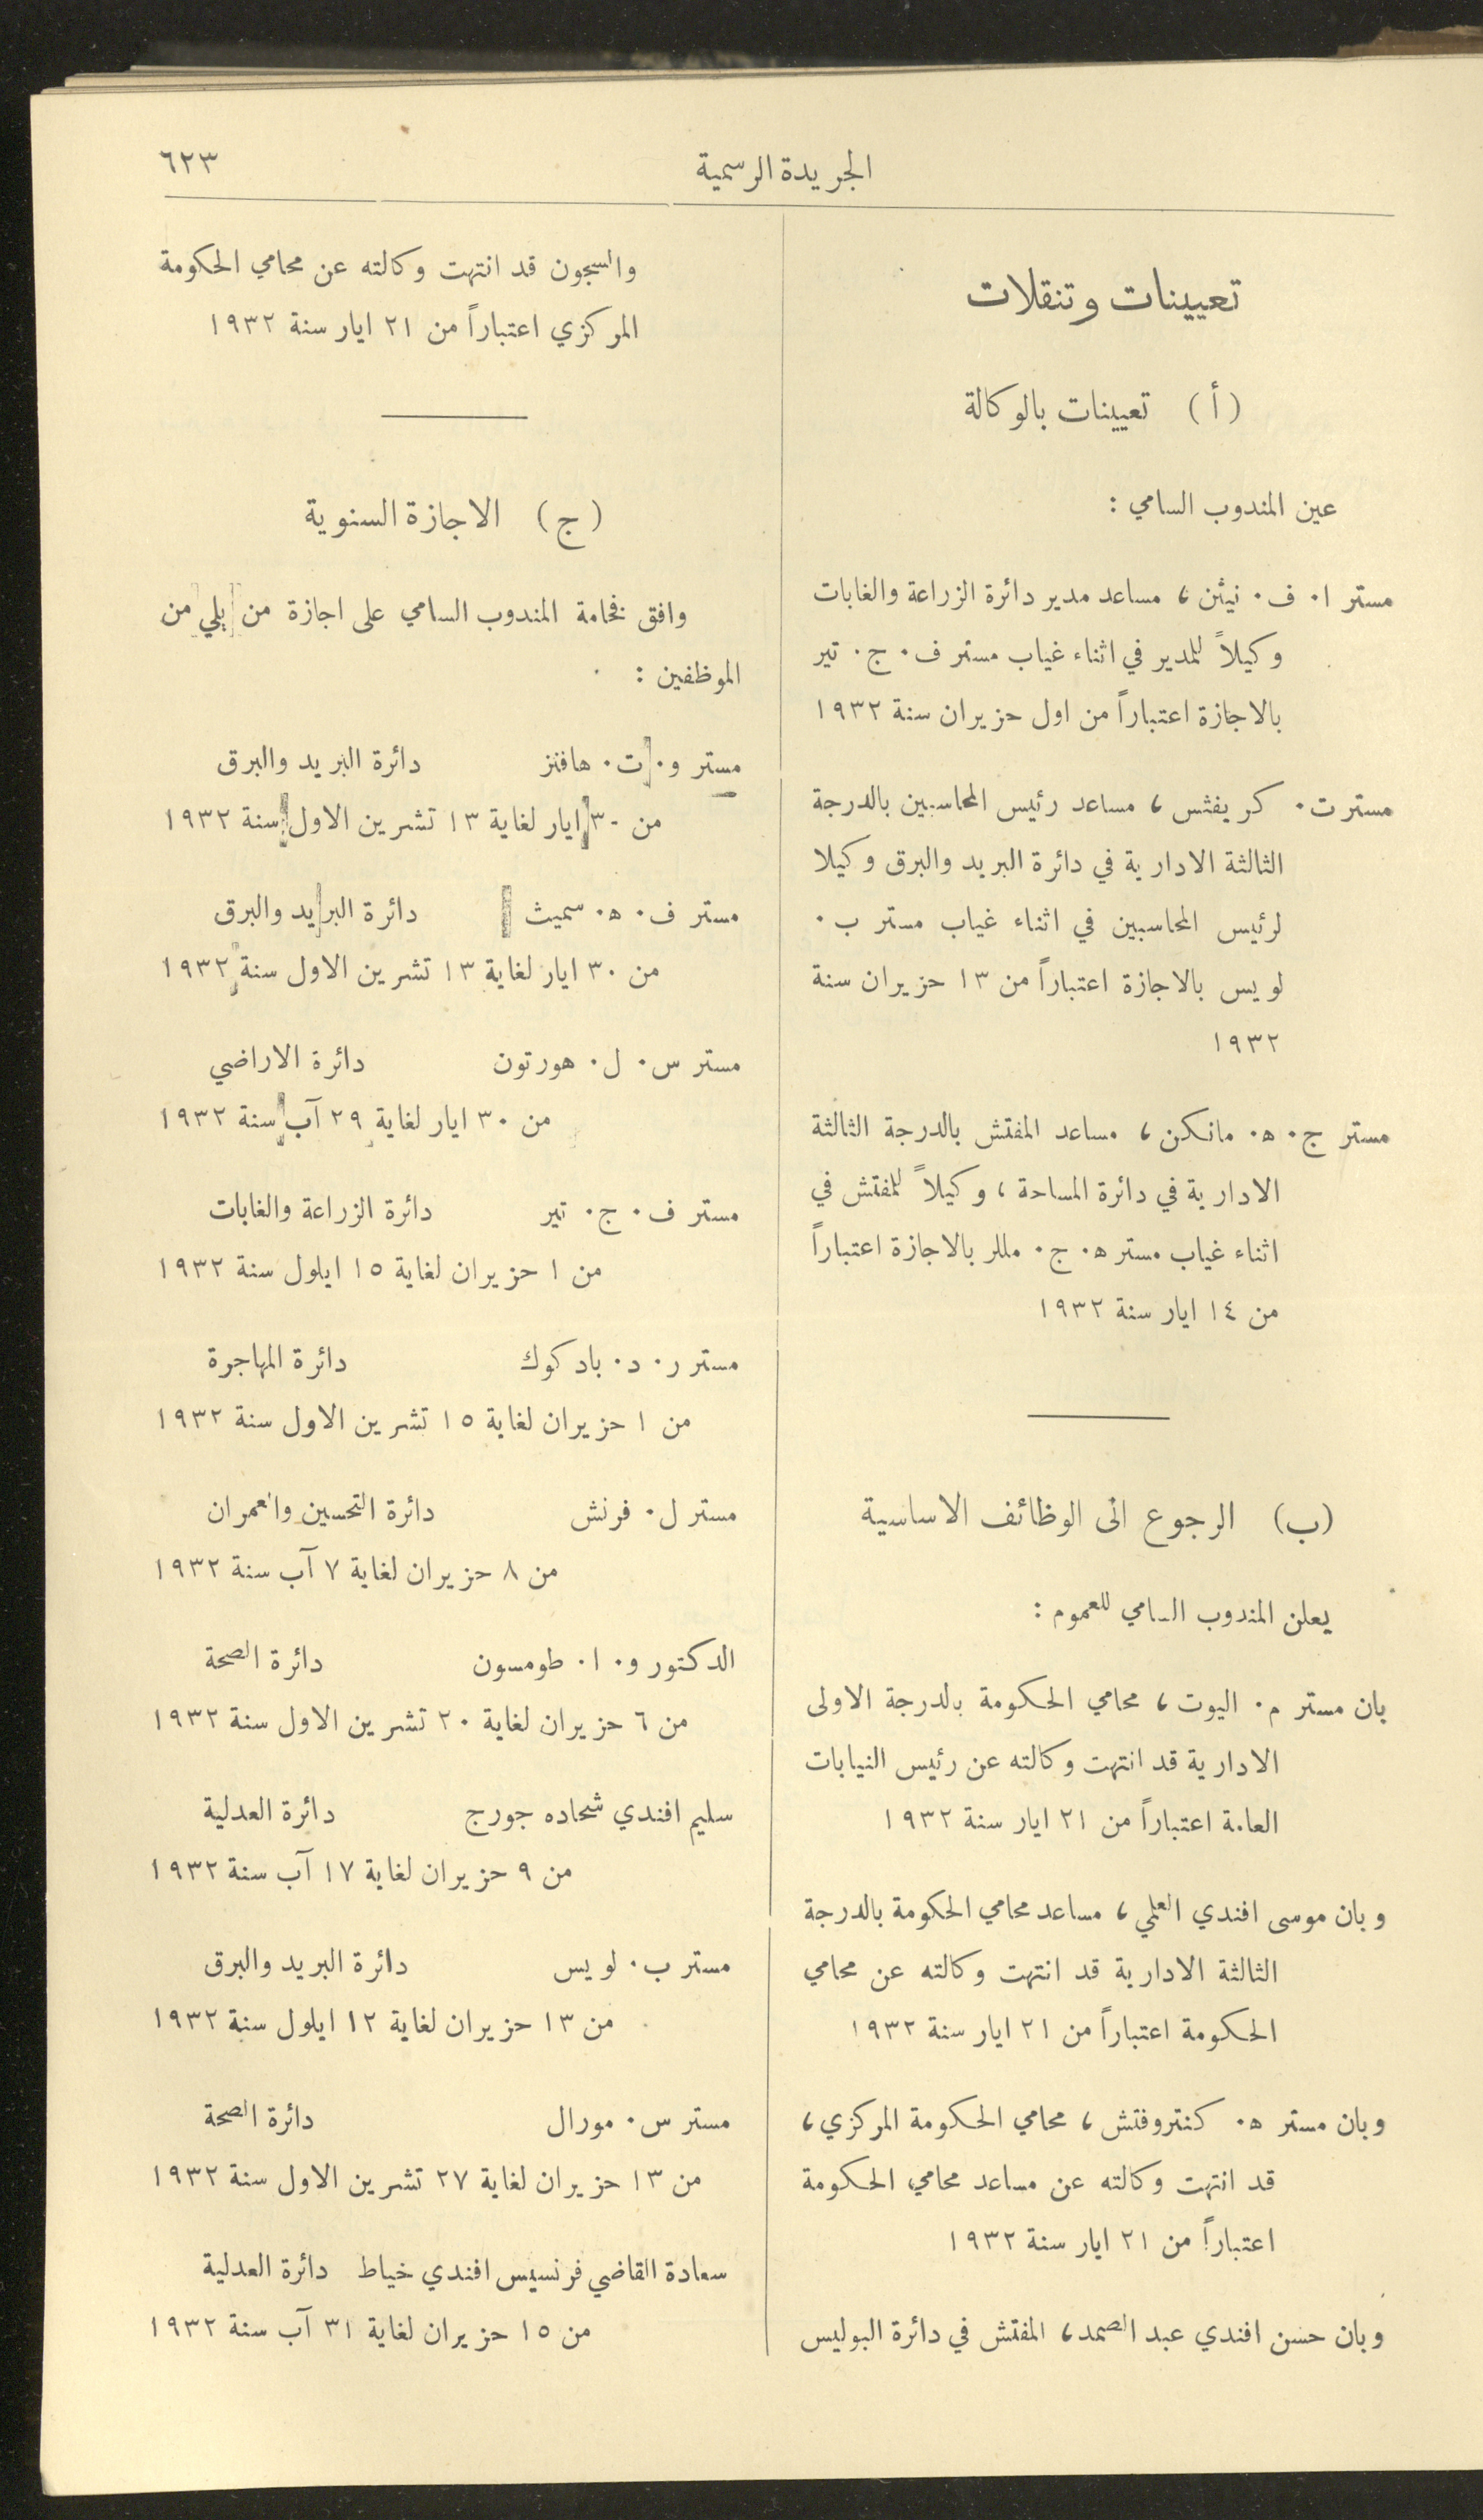 الجريدة الرسمية
٦٢٣
تعيينات وتنقلات
(أ) تعيينات بالوكالة
عين المندوب السامي :
مستر ا. ف. نيثن، مساعد مدير دائرة الزراعة والغابات
وكيلاً للمدير في اثناء غياب مستر ف. ج. تير
بالاجازة اعتباراً من اول حزيران سنة ١٩٣٢
مستر ت. كريفثس، مساعد رئيس المحاسبين بالدرجة
الثالثة الادارية في دائرة البريد والبرق وكيلا
لرئيس المحاسبين في اثناء غياب مستر ب.
لويس بالاجازة اعتباراً من ١٣ حزيران سنة
١٩٣٢
مستر ج. ه. مانكن، مساعد المفتش بالدرجة الثالثة
الادارية في دائرة المساحة، وكيلاً للمفتش في
اثناء غياب مستر ه. ج. مللر بالاجازة اعتباراً
من ١٤ ايار سنة ١٩٣٢
(ب) الرجوع الى الوظائف الاساسية
يعلن المندوب السامي للعموم :
بان مستر م. اليوت، محامي الحكومة بالدرجة الاولى
الادارية قد انتهت وكالته عن رئيس النيابات
العامة اعتباراً من ٢١ ايار سنة ١٩٣٢
وبان موسى افندي العلمي، مساعد محامي الحكومة بالدرجة
الثالثة الادارية قد انتهت وكالته عن محامي
الحكومة اعتباراً من ٢١ ايار سنة ١٩٣٢
وبان مستر ه. كنتروفتش، محامي الحكومة المركزي،
قد انتهت وكالته عن مساعد محامي الحكومة
اعتباراً من ٢١ ايار سنة ١٩٣٢
وبان حسن افندي عبد الصمد، المفتش في دائرة البوليس
والسجون قد انتهت وكالته عن محامي الحكومة
المركزي اعتباراً من ٢١ ايار سنة ١٩٣٢
(ج) الاجازة السنوية
وافق فخامة المندوب السامي على اجازة من يلي من
الموظفين :
مستر و. ت. هافنز دائرة البريد والبرق
من ٣٠ ايار لغاية ١٣ تشرين الاول سنة ١٩٣٢
مستر ف. ه. سميث دائرة البريد والبرق
من ٣٠ ايار لغاية ١٣ تشرين الاول سنة ١٩٣٢
مستر س. ل. هورتون دائرة الاراضي
من ٣٠ ايار لغاية ٢٩ آب سنة ١٩٣٢
مستر ف. ج. تير دائرة الزراعة والغابات
من ١ حزيران لغاية ١٥ ايلول سنة ١٩٣٢
مستر ر. د. بادكوك دائرة المهاجرة
من ١ حزيران لغاية ١٥ تشرين الاول سنة ١٩٣٢
مستر ل. فرنش دائرة التحسين والعمران
من ٨ حزيران لغاية ٧ آب سنة ١٩٣٢
الدكتور و. ا. طومسون دائرة الصحة
من ٦ حزيران لغاية ٢٠ تشرين الاول سنة ١٩٣٢
سليم افندي شحاده جورج دائرة العدلية
من ٩ حزيران لغاية ١٧ آب سنة ١٩٣٢
مستر ب. لويس دائرة البريد والبرق
من ١٣ حزيران لغاية ١٢ ايلول سنة ١٩٣٢
مستر س. مورال دائرة الصحة
من ١٣ حزيران لغاية ٢٧ تشرين الاول سنة ١٩٣٢
سعادة القاضي فرنسيس افندي خياط دائرة العدلية
من ١٥ حزيران لغاية ٣١ آب سنة ١٩٣٢